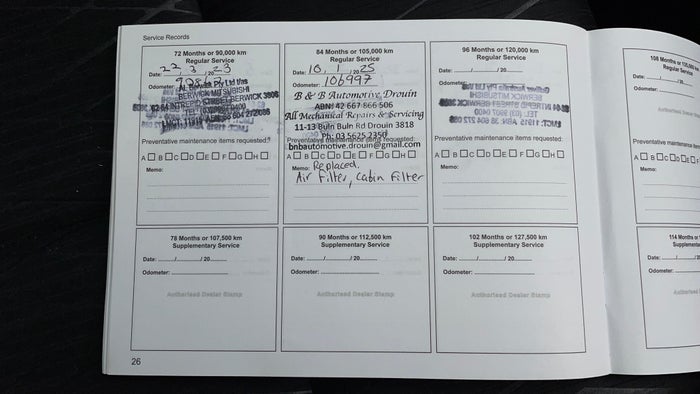 Service Records
72 Months or 90,000 km
Regular Service
Date: 22 / 3 /20 23
Odometer:
BERWICK MITSUBISHI
Preventative maintenance items requested:
A B C D E F G H
Memo:
84 Months or 105,000 km
Regular Service
Date: 10 / 1 /20 25
Odometer: 106997
B & B Automotive, Drouin
ABN: 42 667 866 506
All Mechanical Repairs & Servicing
11-13 Buln Buln Rd Drouin 3818
Ph: 03 5625 2350
bnbautomotive.drouin@gmail.com
A B C D E F G H
Memo: Replaced.
Air Filter, Cabin Filter
96 Months or 120,000 km
Regular Service
Date: / /20
Preventative maintenance items requested:
A B C D E F G H
Memo:
108 Months or
Regular Service
Date:
Odometer:
Preventative maintenance
A B C D E F
Memo:
78 Months or 107,500 km
Supplementary Service
Date: / /20
Odometer:
Authorised Dealer Stamp
90 Months or 112,500 km
Supplementary Service
Date: / /20
Odometer:
Authorised Dealer Stamp
102 Months or 127,500 km
Supplementary Service
Date: / /20
Odometer:
Authorised Dealer Stamp
114 Months or
Supplementary
Date:
Odometer:
26